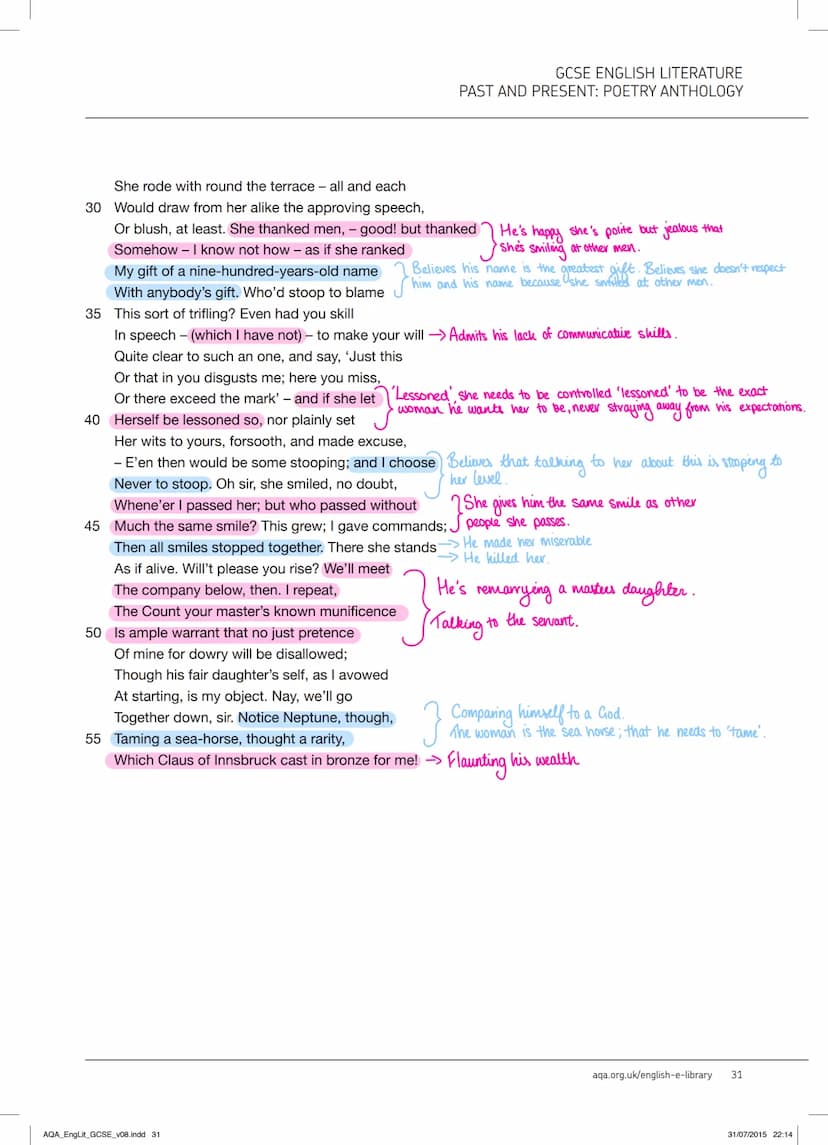 GCSE ENGLISH LITERATURE
PAST AND PRESENT: POETRY ANTHOLOGY
She rode with round the terrace – all and each
30 Would draw from her alike the approving speech,
Or blush, at least. She thanked men, – good! but thanked
He's happy she's polite but jealous that
Somehow – I know not how – as if she ranked
she's smiling at other men.
My gift of a nine-hundred-years-old name
Believes his name is the greatest gift. Believes she doesn't respect
him and his name because she smiled at other men.
With anybody's gift. Who'd stoop to blame
35 This sort of trifling? Even had you skill
In speech – (which I have not) – to make your will → Admits his lack of communicative skills.
Quite clear to such an one, and say, 'Just this
Or that in you disgusts me; here you miss,
Or there exceed the mark' – and if she let
'Lessoned', she needs to be controlled 'lessoned' to be the exact
woman he wants her to be, never straying away from his expectations.
40 Herself be lessoned so, nor plainly set
Her wits to yours, forsooth, and made excuse,
– E'en then would be some stooping; and I choose
Believes that talking to her about this is stooping to
her level.
Never to stoop. Oh sir, she smiled, no doubt,
Whene'er I passed her; but who passed without
She gives him the same smile as other
people she passes.
45 Much the same smile? This grew; I gave commands;
Then all smiles stopped together. There she stands
→ He made her miserable
→ He killed her.
As if alive. Will't please you rise? We'll meet
The company below, then. I repeat,
He's remarrying a masters daughter.
The Count your master's known munificence
Talking to the servant.
50 Is ample warrant that no just pretence
Of mine for dowry will be disallowed;
Though his fair daughter's self, as I avowed
At starting, is my object. Nay, we'll go
Together down, sir. Notice Neptune, though,
Comparing himself to a God.
The woman is the sea horse; that he needs to 'tame'.
55 Taming a sea-horse, thought a rarity,
Which Claus of Innsbruck cast in bronze for me! → Flaunting his wealth
aqa.org.uk/english-e-library 31
AQA_EngLit_GCSE_v08.indd 31
31/07/2015 22:14